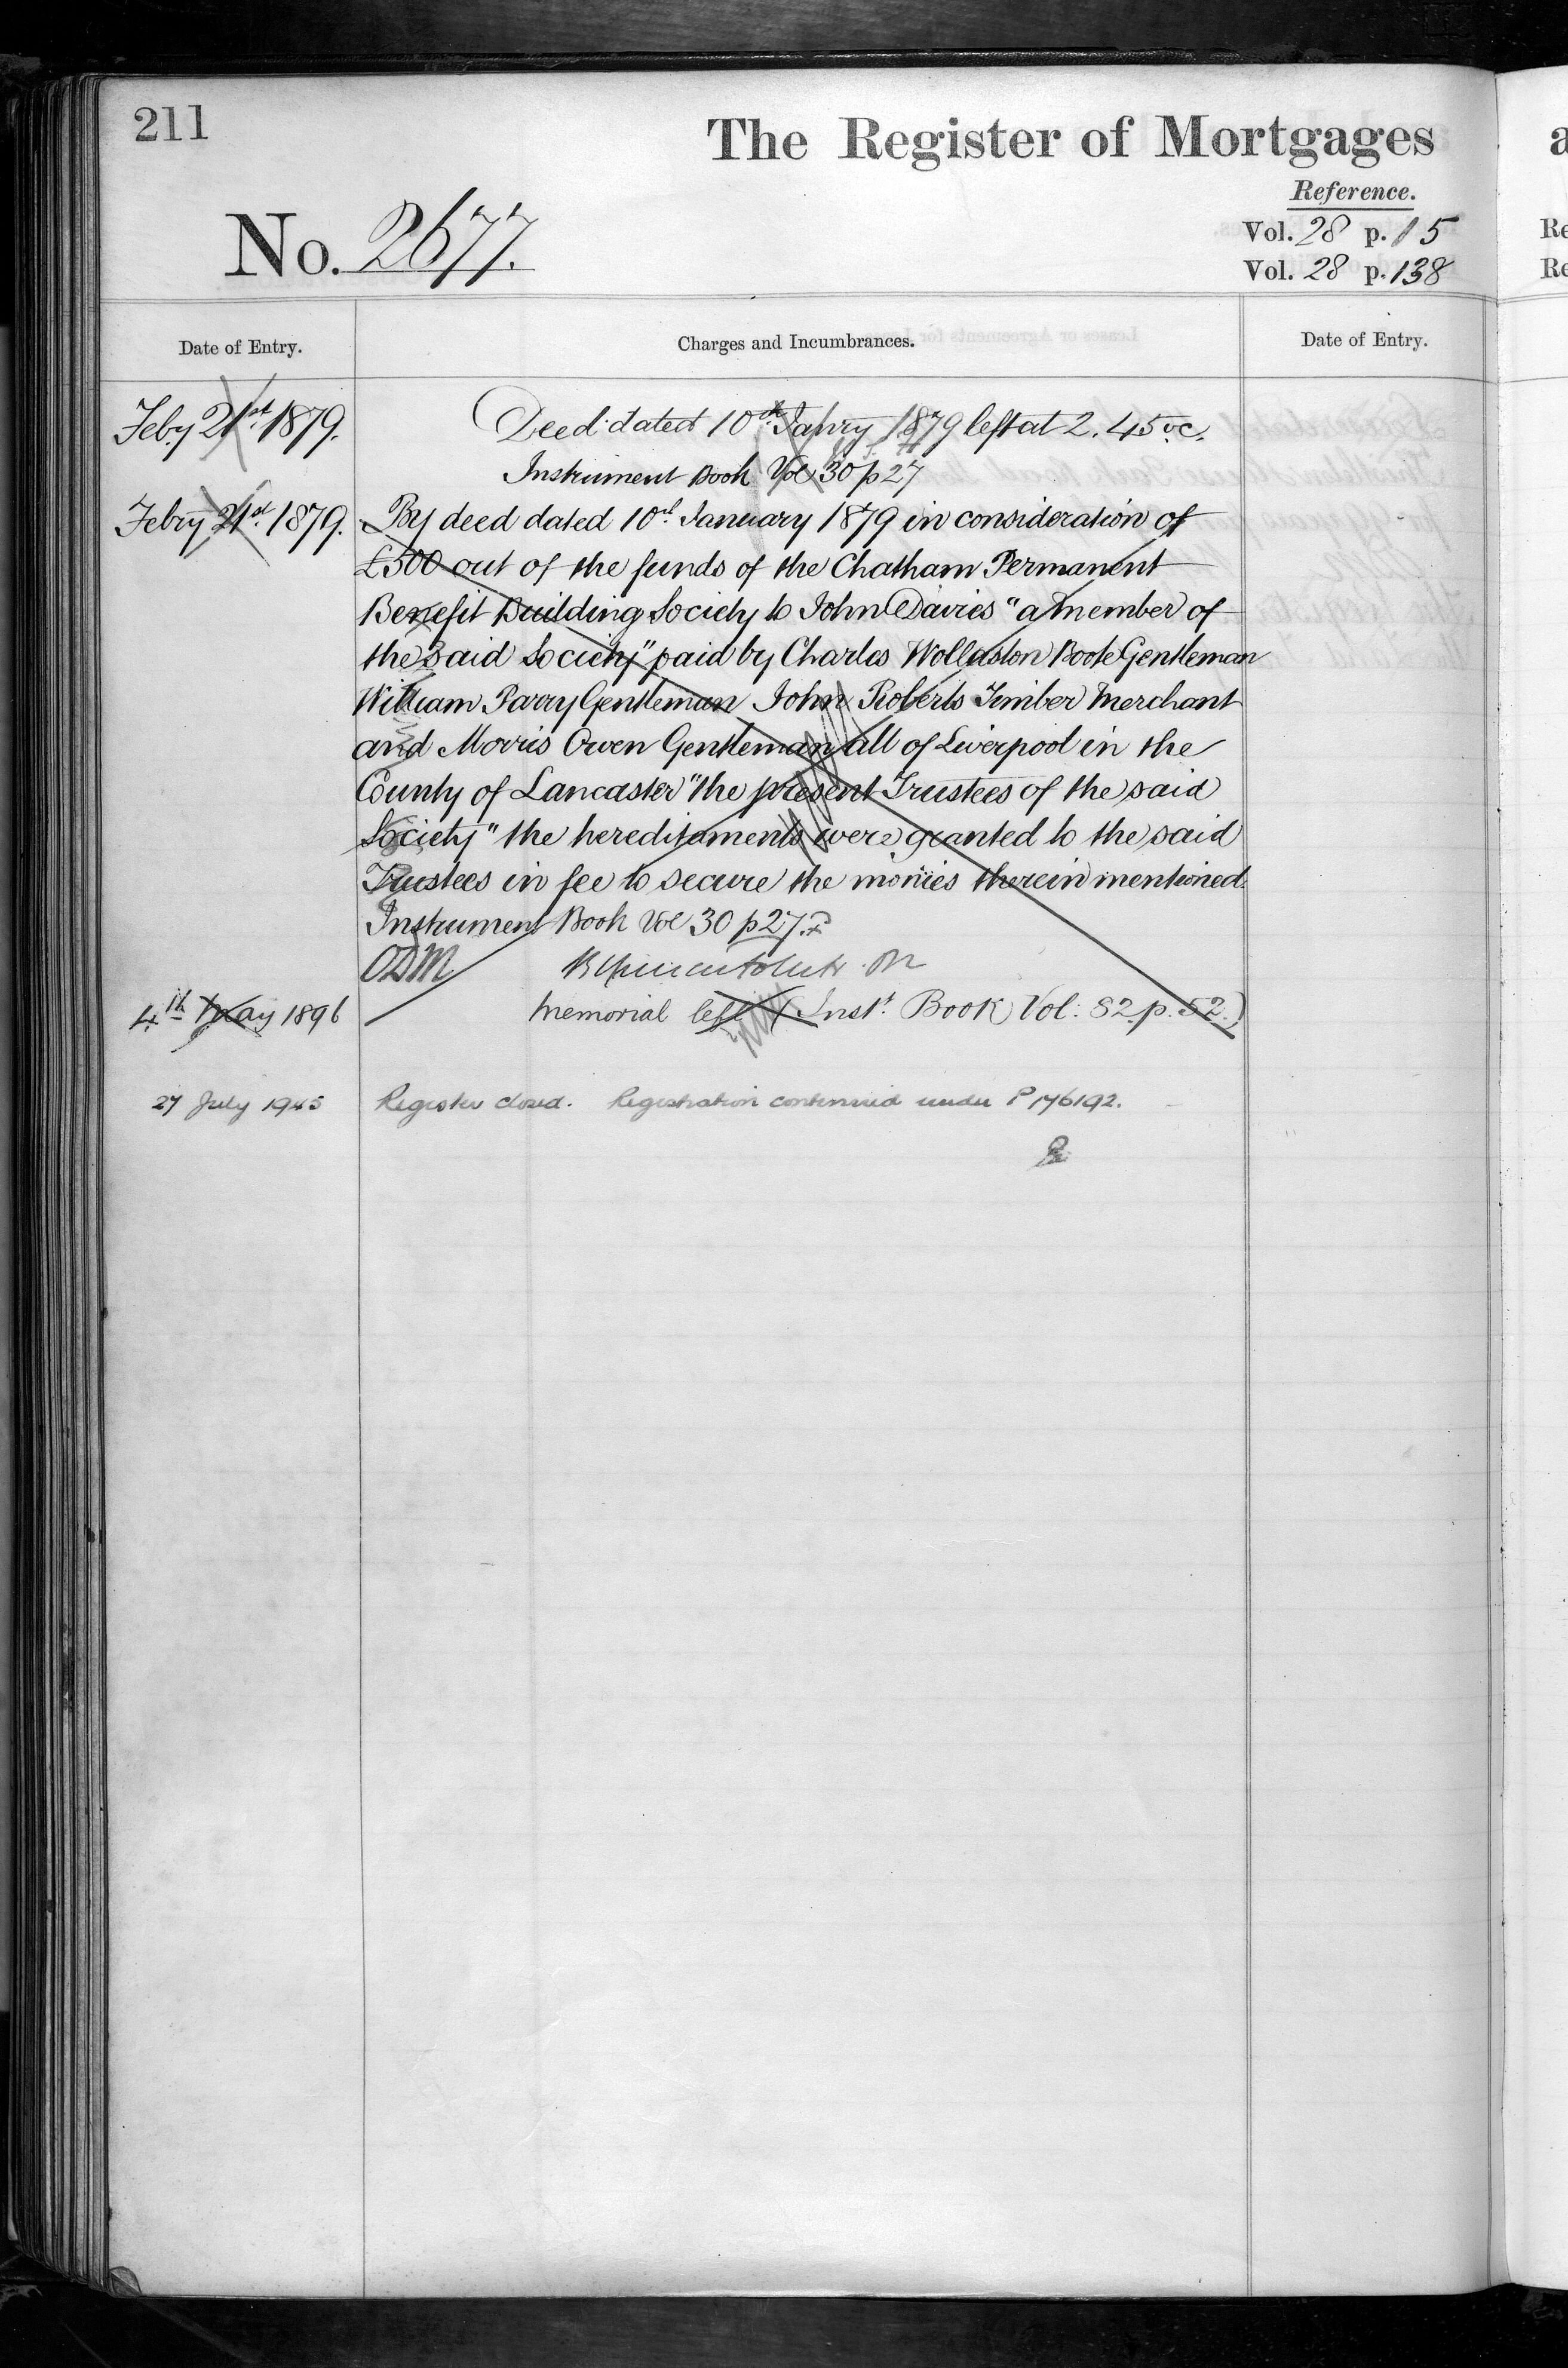 211
The Register of Mortgages
Reference.
No. 2677.
Vol. 28 p. 15
Vol. 28 p. 138
Date of Entry.
Charges and Incumbrances.
Date of Entry.
Feby 21st 1879. Deed dated 10th Janry 1879 left at 2.45 oc.
Instrument Book Vol 30 p 27
Febry 21st 1879. By deed dated 10th January 1879 in consideration of
£500 out of the funds of the Chatham Permanent
Benefit Building Society to John Davies "a member of
the said Society" paid by Charles Wollaston Gentleman
William Parry Gentleman John Roberts Timber Merchant
and Morris Owen Gentleman all of Liverpool in the
County of Lancaster "the present Trustees of the said
Society" the hereditaments were granted to the said
Trustees in fee to secure the monies therein mentioned.
Instrument Book Vol 30 p 27.
ODM
4th May 1896 Memorial left (Inst. Book Vol: 82 p. 52.)
27 July 1945 Register closed. Registration continued under P 176192.